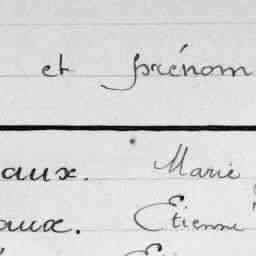 et prénom
aux. Marie
aux. Etienne